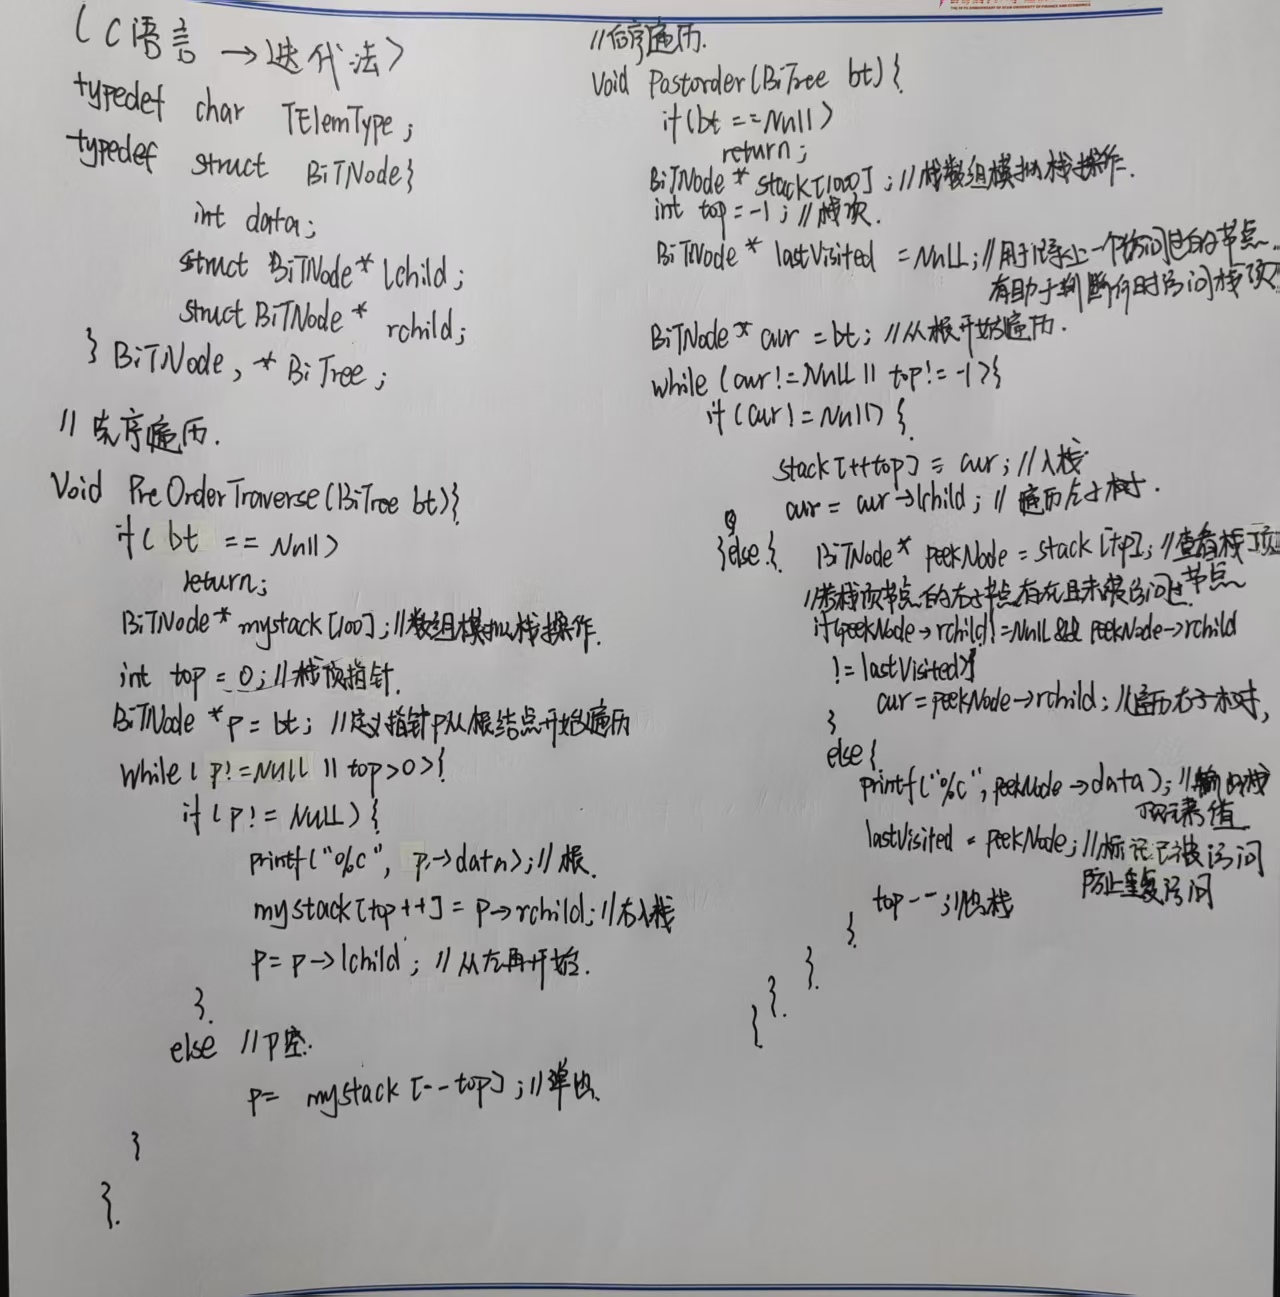 (C语言 → 迭代法)
typedef char TElemType;
typedef struct BiTNode{
int data;
struct BiTNode* lchild;
struct BiTNode* rchild;
} BiTNode, *BiTree;
//先序遍历.
Void PreOrderTraverse(BiTree bt){
if( bt == Null)
return;
BiTNode* mystack[100]; //数组模拟栈操作.
int top = 0; //栈顶指针.
BiTNode *p = bt; //定义指针p从根结点开始遍历
while( p!=NULL || top>0){
if(p!= NULL){
printf("%c", p->data); //根.
mystack[top++] = p->rchild; //右入栈
p= p->lchild; //从左再开始.
}.
else //P空.
p= mystack[--top]; //弹出.
}
}.
//后序遍历.
Void Postorder(BiTree bt){
if(bt ==Null)
return;
BiTNode* stack[100]; //栈数组模拟栈操作.
int top = -1; //栈顶.
BiTNode* lastVisited = NULL; //用于记录上一个访问过的节点.
有助于判断何时访问栈顶
BiTNode* cur = bt; //从根开始遍历.
while(cur!=NULL || top!=-1){
if(cur!=Null){
stack[++top] = cur; //入栈
cur = cur->lchild; //遍历左子树.
}else{ BiTNode* peekNode = stack[top]; //查看栈顶
节点
//若栈顶节点的右子节点存在且未被访问过
if(peekNode->rchild!=NULL && peekNode->rchild
!=lastVisited){
cur=peekNode->rchild; //遍历右子树,
}
else{
printf("%c", peekNode->data); //输出栈
顶元素值
lastVisited = peekNode; //标记已被访问
防止重复访问
top--; //出栈
}.
}.
}.
{.